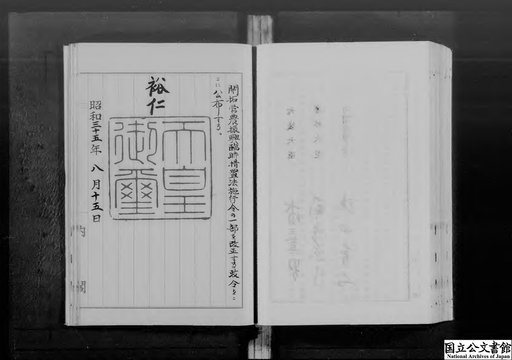 開拓営農振興臨時措置法施行令の一部を改正する政令をここに公布する。
裕仁
天皇御璽
昭和三十五年八月十五日
内閣
国立公文書館
National Archives of Japan